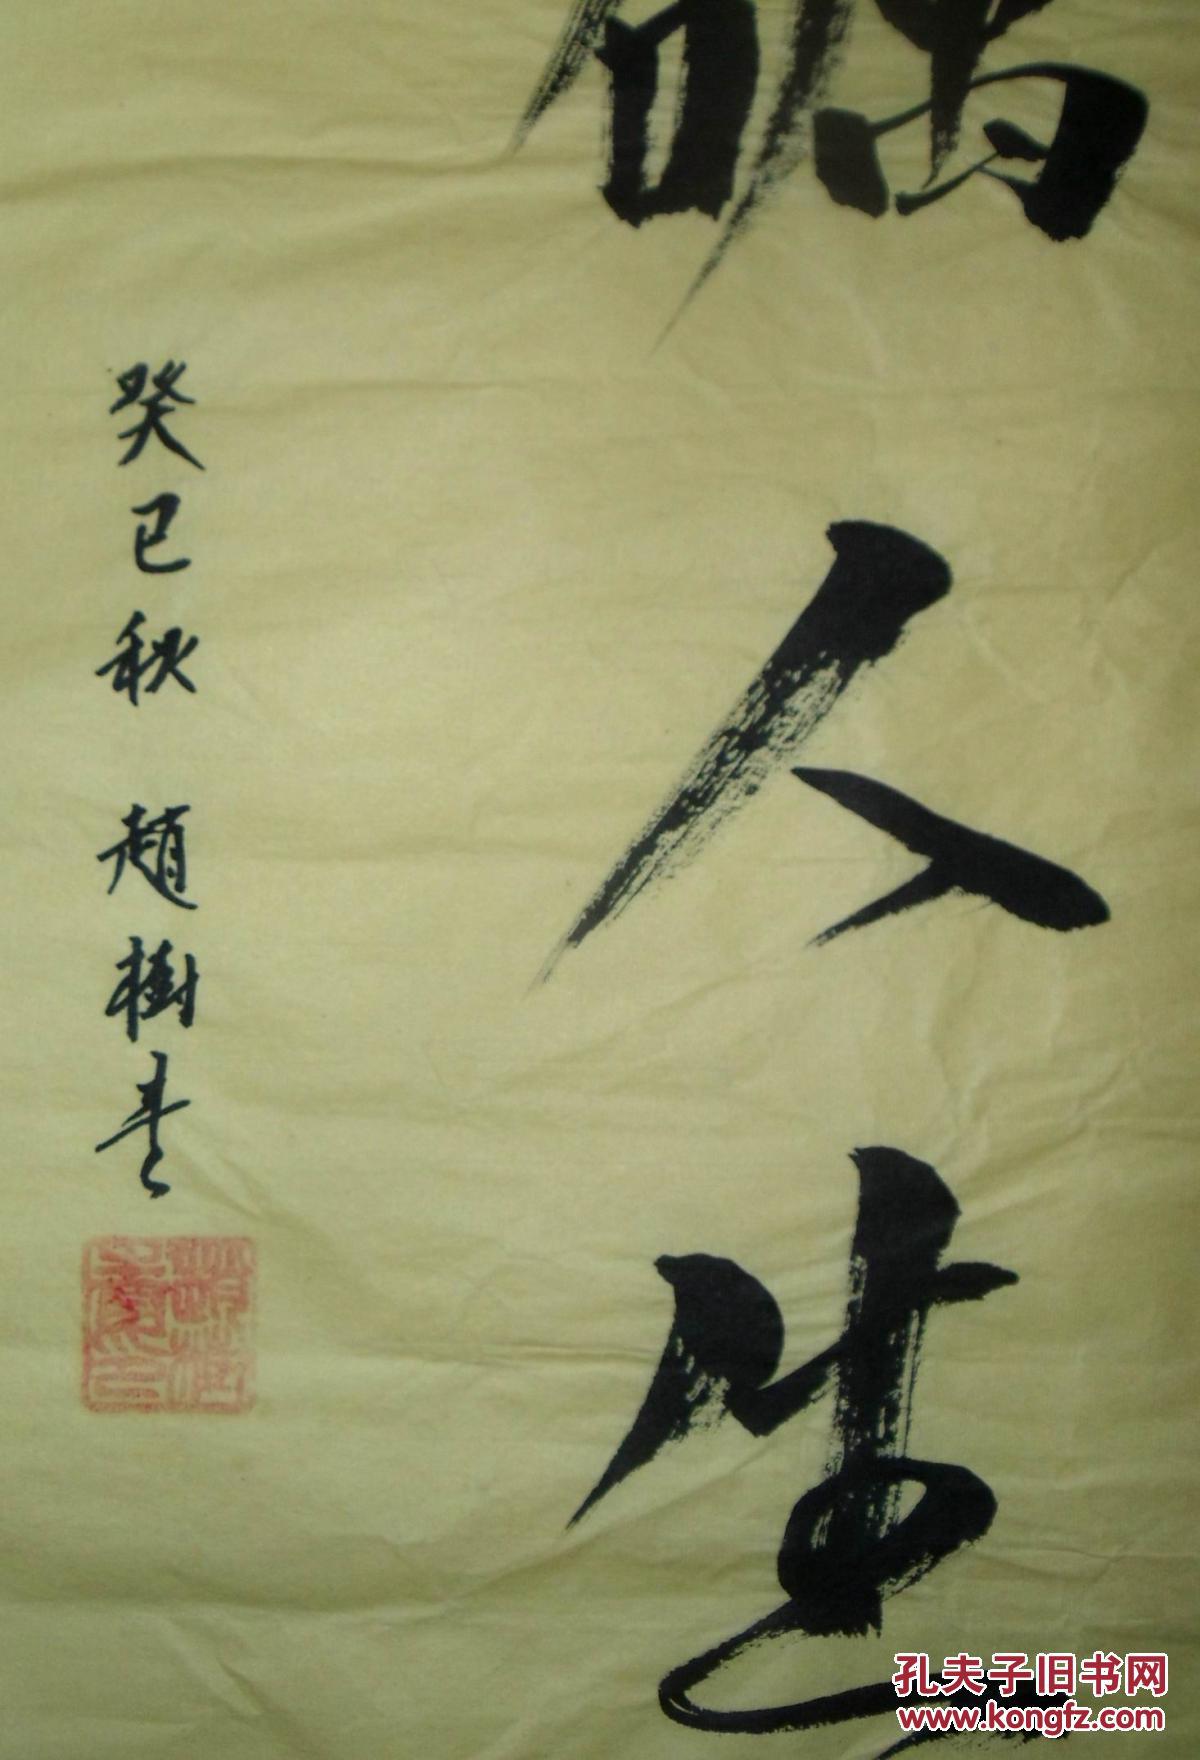 礪人生
癸巳秋 趙樹
孔夫子旧书网
www.kongfz.com